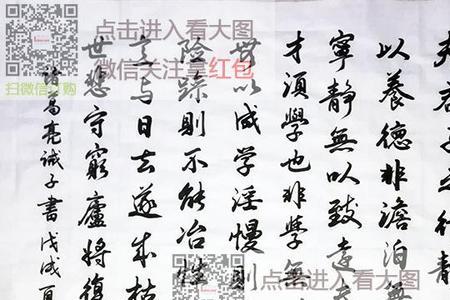 夫君子之行静
以養德非澹泊無
寧静無以致遠夫
才須學也非學無
無以成学淫慢則
險躁則不能冶性
意与日去遂成枯
世悲守窮廬將復
諸葛亮诫子書戊戌夏
点击进入看大图
微信关注拿红包
扫微信订购
点击进入看大图